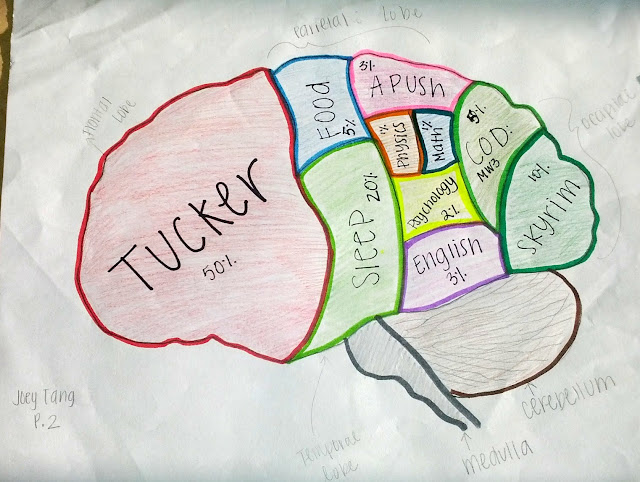 Parietal lobe
Frontal
lobe
occipital
lobe
TUCKER
50%
Food
5%
3%
APUSH
Physics
1%
Math
1%
5%
COD:
MW3
10%
Skyrim
SLEEP
20%
Psychology
2%
English
3%
Joey Tang
P.2
Temporal
lobe
medulla
cerebellum